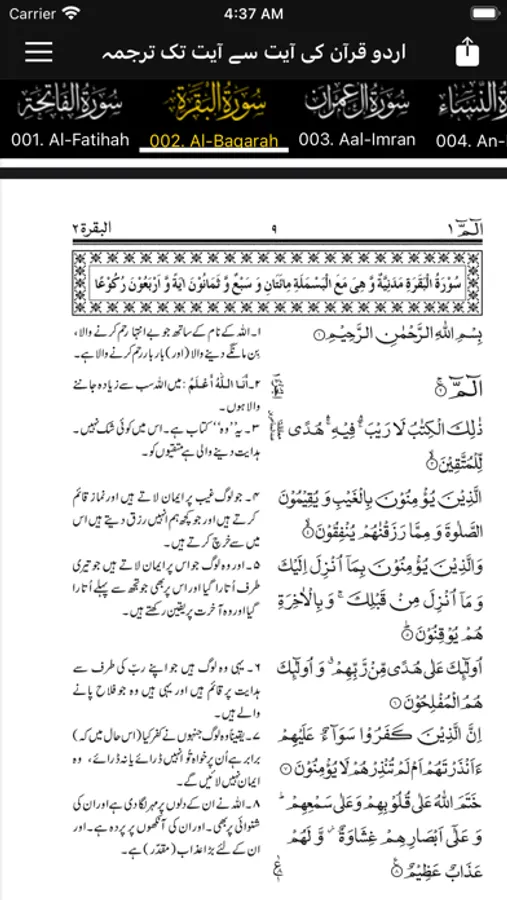 Carrier 4:37 AM
اردو قرآن کی آیت سے آیت تک ترجمہ
سورة الفاتحة سورة البقرة سورة آل عمران النساء
001. Al-Fatihah 002. Al-Baqarah 003. Aal-Imran 004. An-
الٓمّٓ ۱ ۹ البقرة ۲
سُوْرَةُ الْبَقَرَةِ مَدَنِيَّةٌ وَّ هِيَ مَعَ الْبَسْمَلَةِ مِائَتَانِ وَ سَبْعٌ وَّ ثَمَانُوْنَ اٰيَةً وَّ اَرْبَعُوْنَ رُكُوْعًا
بِسْمِ اللّٰهِ الرَّحْمٰنِ الرَّحِيْمِ ۝۱
الٓمّٓ ۝۲
ذٰلِكَ الْكِتٰبُ لَا رَيْبَ ۛ فِيْهِ ۛ هُدًى
لِّلْمُتَّقِيْنَ ۝۳
الَّذِيْنَ يُؤْمِنُوْنَ بِالْغَيْبِ وَ يُقِيْمُوْنَ
الصَّلٰوةَ وَ مِمَّا رَزَقْنٰهُمْ يُنْفِقُوْنَ ۝۴
وَالَّذِيْنَ يُؤْمِنُوْنَ بِمَاۤ اُنْزِلَ اِلَيْكَ
وَ مَاۤ اُنْزِلَ مِنْ قَبْلِكَ ۚ وَ بِالْاٰخِرَةِ
هُمْ يُوْقِنُوْنَ ۝۵
اُولٰٓئِكَ عَلٰى هُدًى مِّنْ رَّبِّهِمْ ۗ وَ اُولٰٓئِكَ
هُمُ الْمُفْلِحُوْنَ ۝۶
اِنَّ الَّذِيْنَ كَفَرُوْا سَوَآءٌ عَلَيْهِمْ
ءَاَنْذَرْتَهُمْ اَمْ لَمْ تُنْذِرْهُمْ لَا يُؤْمِنُوْنَ ۝۷
خَتَمَ اللّٰهُ عَلٰى قُلُوْبِهِمْ وَ عَلٰى سَمْعِهِمْ ۗ
وَ عَلٰۤى اَبْصَارِهِمْ غِشَاوَةٌ ۫ وَّ لَهُمْ
عَذَابٌ عَظِيْمٌ ۝۸
۱۔ اللہ کے نام کے ساتھ جو بے انتہا رحم کرنے والا،
بِن مانگے دینے والا (اور) بار بار رحم کرنے والا ہے۔
۲۔ اَنَا اللّٰهُ اَعْلَمُ: میں اللہ سب سے زیادہ جاننے
والا ہوں۔
۳۔ یہ ”وہ“ کتاب ہے۔ اس میں کوئی شک نہیں۔
ہدایت دینے والی ہے متقیوں کو۔
۴۔ جو لوگ غیب پر ایمان لاتے ہیں اور نماز قائم
کرتے ہیں اور جو کچھ ہم انہیں رزق دیتے ہیں اس
میں سے خرچ کرتے ہیں۔
۵۔ اور وہ لوگ جو اس پر ایمان لاتے ہیں جو تیری
طرف اُتارا گیا اور اس پر بھی جو تجھ سے پہلے اُتارا
گیا اور وہ آخرت پر یقین رکھتے ہیں۔
۶۔ یہی وہ لوگ ہیں جو اپنے ربّ کی طرف سے
ہدایت پر قائم ہیں اور یہی ہیں وہ جو فلاح پانے
والے ہیں۔
۷۔ یقیناً وہ لوگ جنہوں نے کفر کیا (اس حال میں کہ)
برابر ہے اُن پر خواہ تُو انہیں ڈرائے یا نہ ڈرائے، وہ
ایمان نہیں لائیں گے۔
۸۔ اللہ نے ان کے دلوں پر مہر لگا دی ہے اور ان کی
شنوائی پر بھی۔ اور ان کی آنکھوں پر پردہ ہے۔ اور
ان کے لئے بڑا عذاب (مقدّر) ہے۔